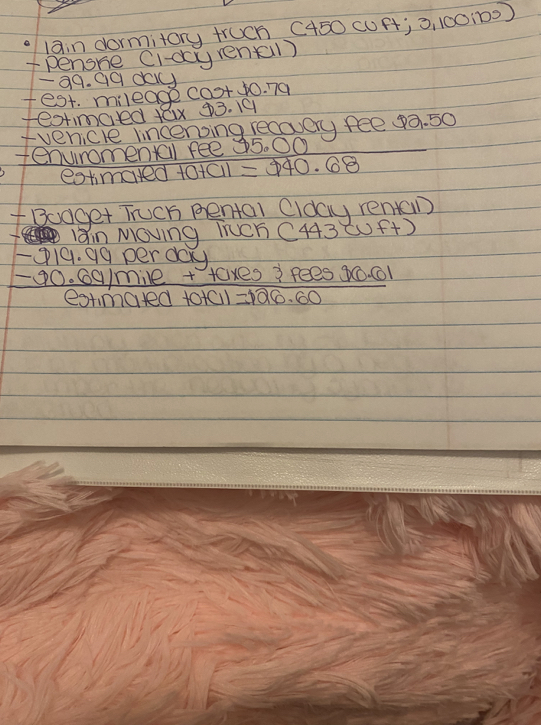 • 12in dormitory truck (450 cu ft; 3,100 lbs)
- Penske (1-day rental)
- 29.99 day
- est. mileage cost $0.79
- estimated tax $3.19
- vehicle lincensing recovary fee $2.50
- enviromental fee $5.00
estimated total = $40.68
- Budget Truck Rental (1day rental)
- 12in Moving Truck (443 cu ft)
- $19.99 per day
- $0.69/mile + taxes & fees $6.61
estimated total = $26.60